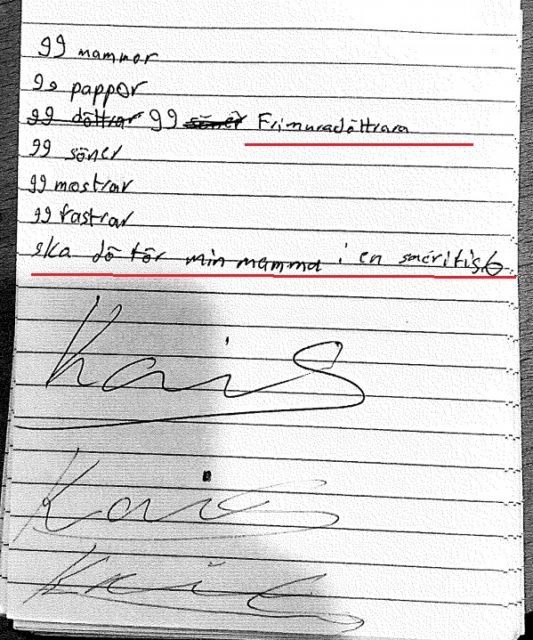 99 mammor
99 pappor
99 döttrar 99 söner Frimuradöttrara
99 söner
99 mostrar
99 fastrar
ska dö för min mamma i en
Kais
Kais
Kais